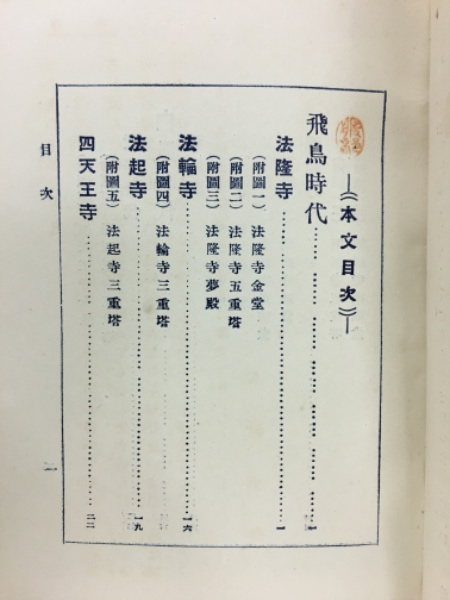 ―(本文目次)―
飛鳥時代……………………一
法隆寺……………………一
(附圖一) 法隆寺金堂
(附圖二) 法隆寺五重塔
(附圖三) 法隆寺夢殿
法輪寺……………………一六
(附圖四) 法輪寺三重塔
法起寺……………………一九
(附圖五) 法起寺三重塔
四天王寺……………………二二
目次
一